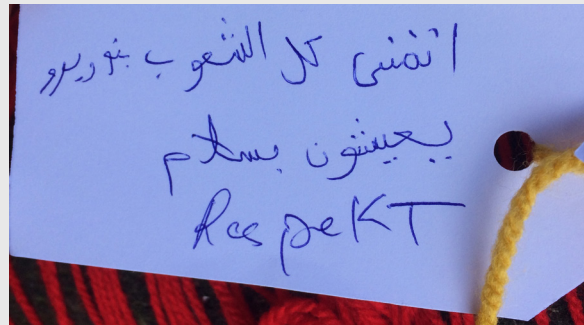 اتمنى كل الشعوب
يعيشون بسلام
RespeKT